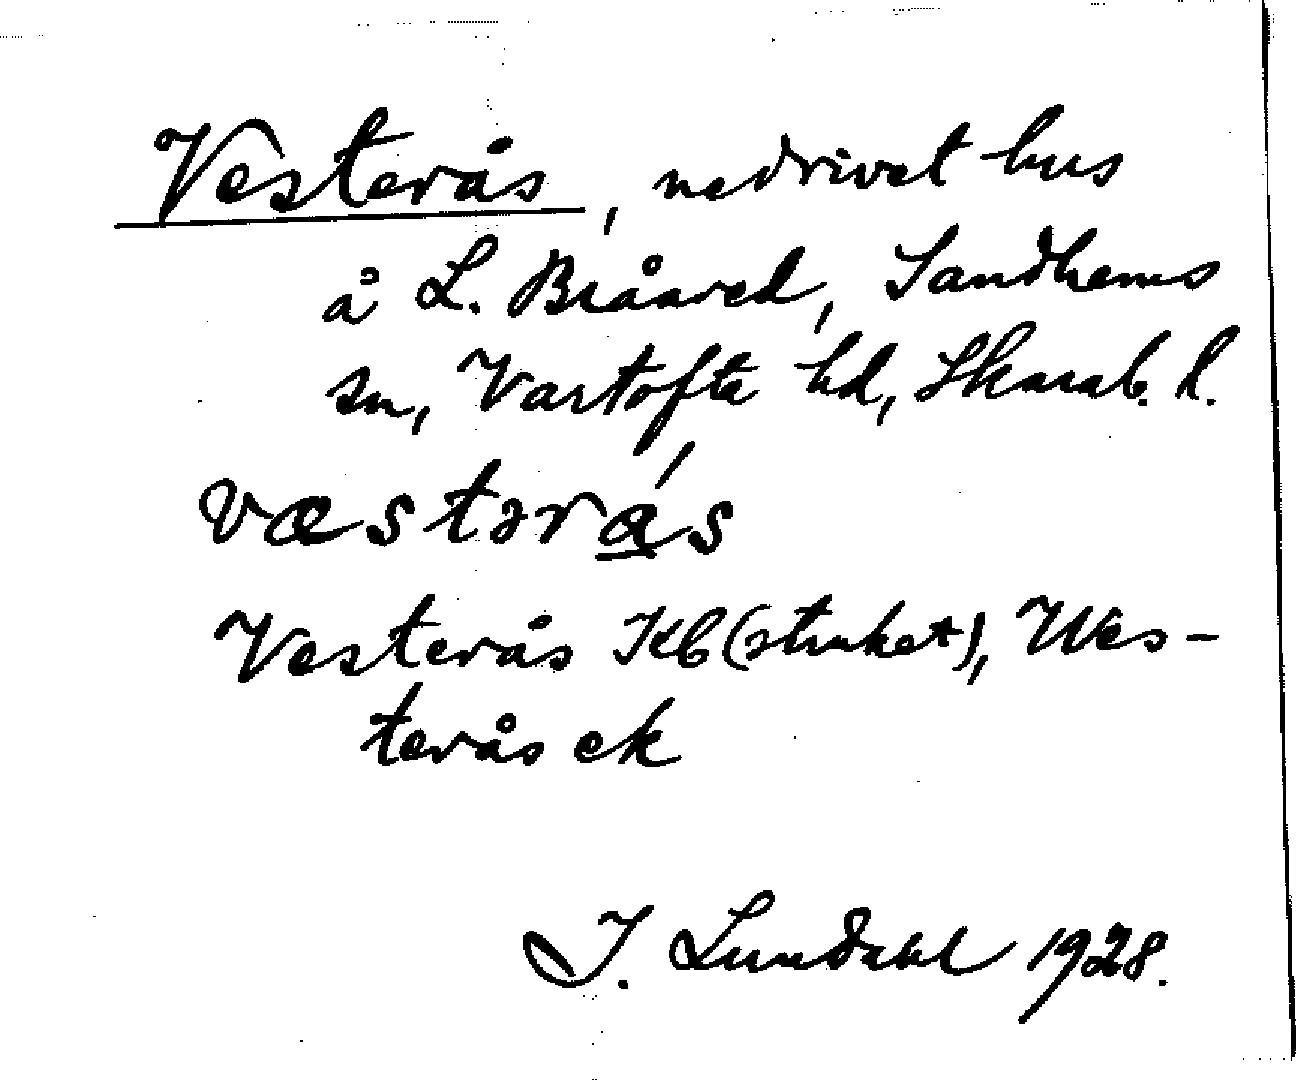 Vesterås, nedrivet hus
å L. Bråared, Sandhems
sn, Vartofta hd, Skarab. l.
væstərás
Vesterås Kb (struket), Wes-
terås ek
I. Lundahl 1928.